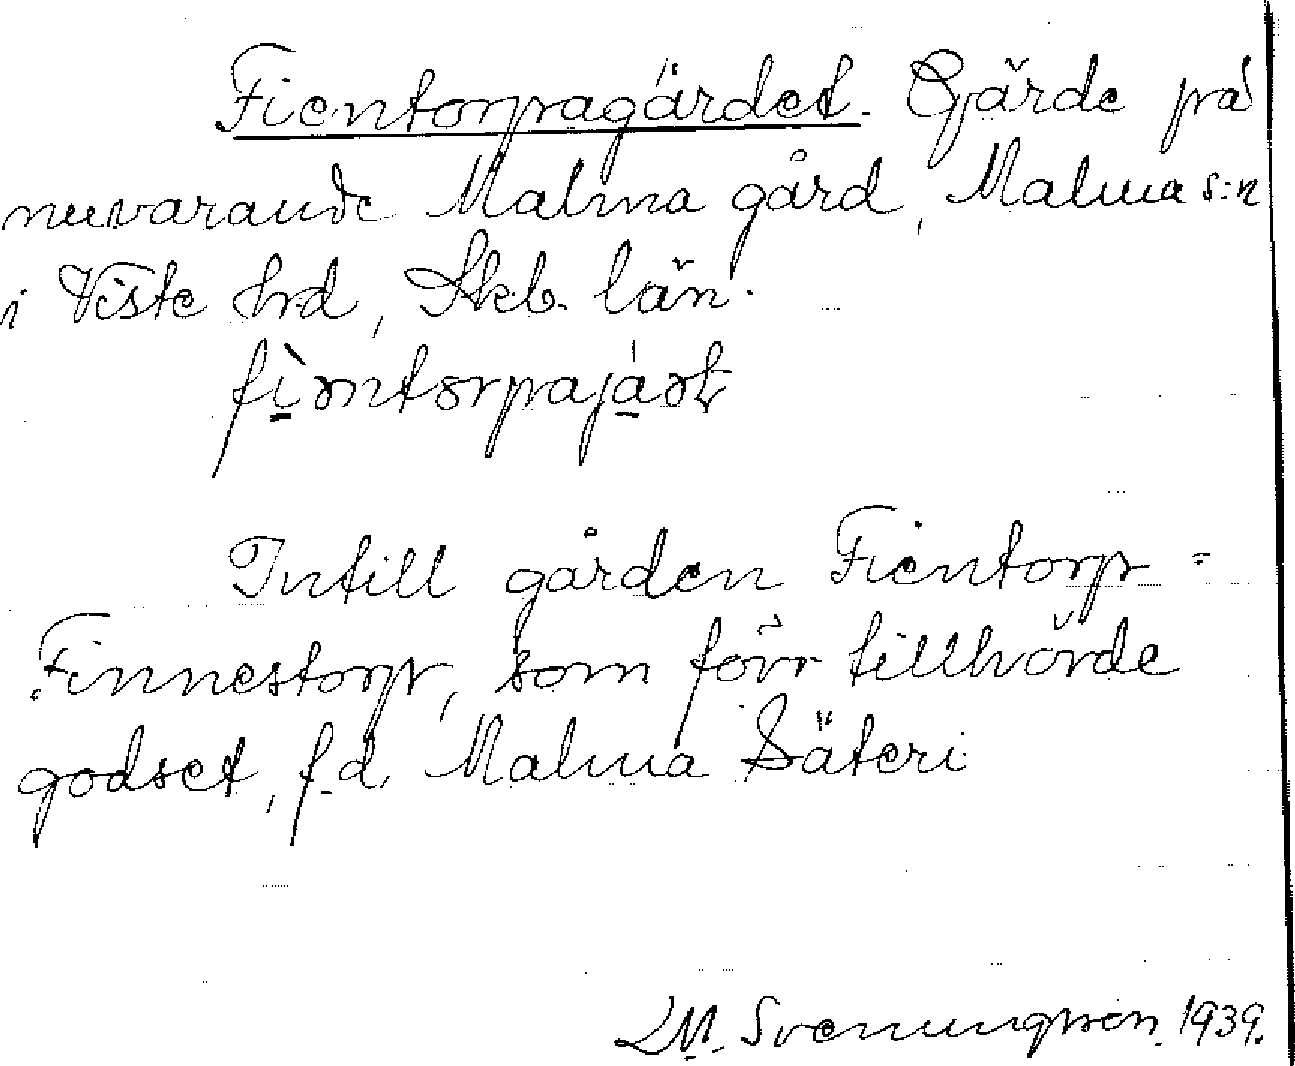 Fientorpagärdet. Gärde på
nuvarande Malma gård, Malma s:n
i Viste hrd, Skb. län.
fì̱əntorpajá̱ət
Intill gården Fientorp =
Finnestorp, som förr tillhörde
godset, f.d. Malma Säteri
LM. Svenungsson. 1939.